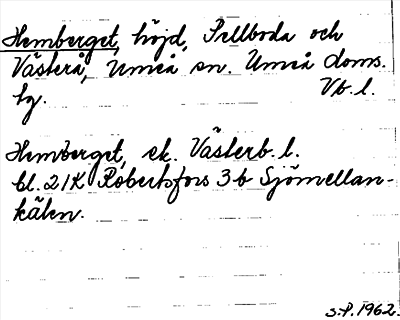 Hemberget, höjd, Pellboda och
Västerå, Umeå sn. Umeå doms.
hg. Vb. l.
Hemberget, ek. Västerb. l.
bl. 21K Robertsfors 3b Sjömellan-
kälen.
S.P. 1962.